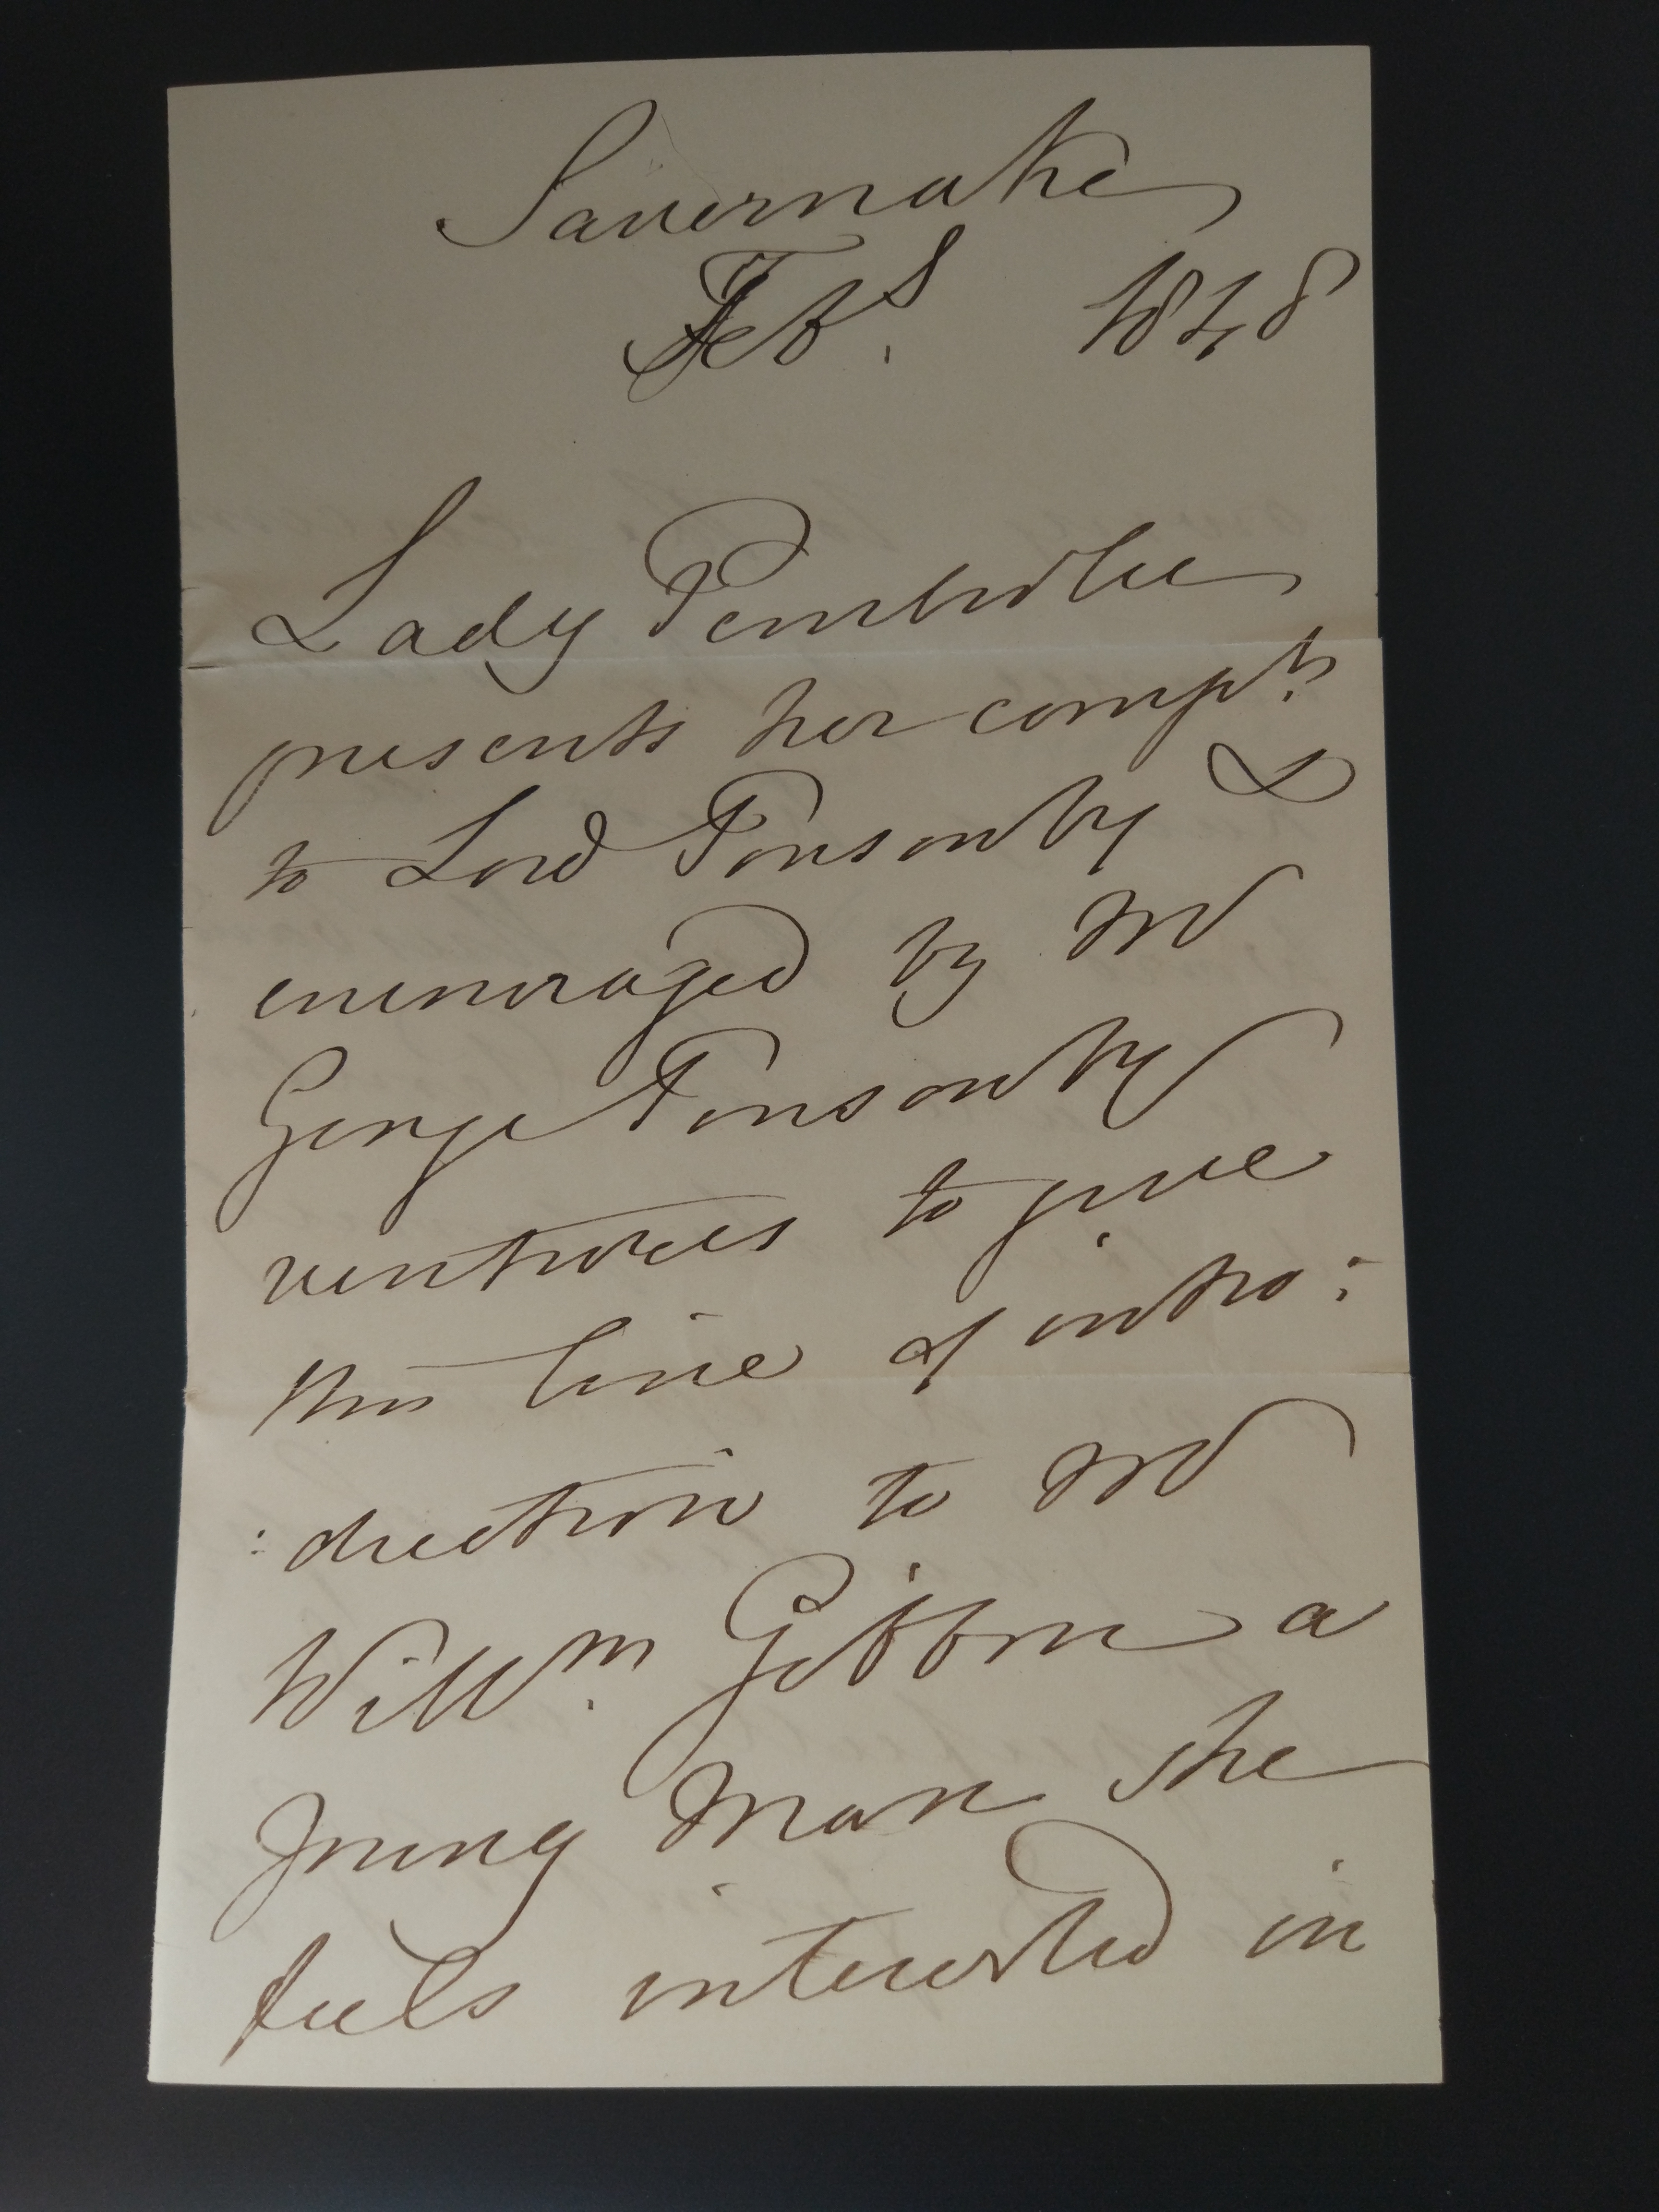 Savernake
Feb 8. 1848
Lady Pembroke
presents her compts.
to Lord Ponsonby &
encouraged by Mr
George Ponsonby
ventures to give
this line of intro:
:duction to Mr
Willm. Gibbon a
young Man she
feels interested in